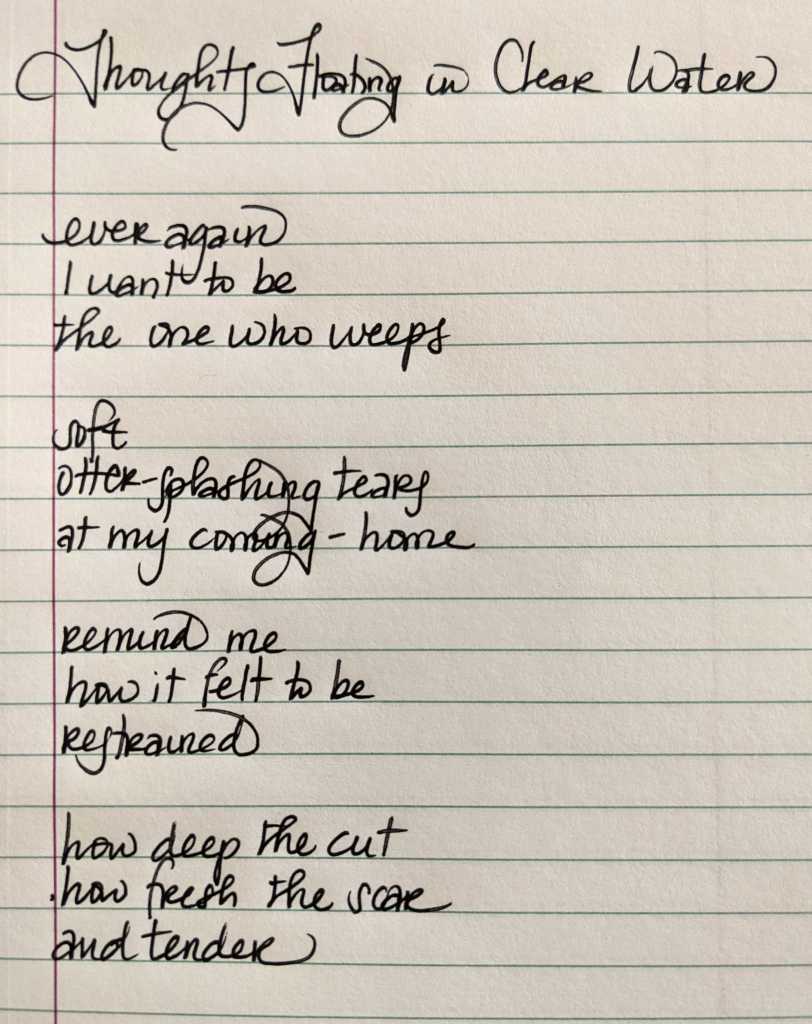 Thoughts Floating in Clear Water
ever again
I want to be
the one who weeps
soft
otter-splashing tears
at my coming-home
remind me
how it felt to be
restrained
how deep the cut
how fresh the scar
and tender